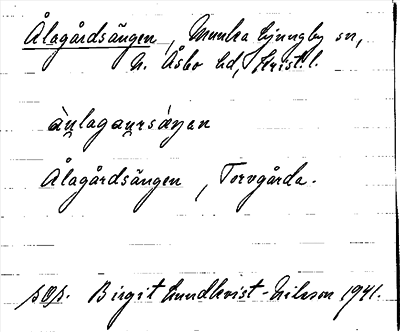 Ålagårdsängen, Munka Ljungby sn,
N. Åsbo hd, Krist. l.
àu̯lagau̯rsáŋen
Ålagårdsängen, Torvgårda.
sOp. Birgit Lundkvist-Nilsson 1941.